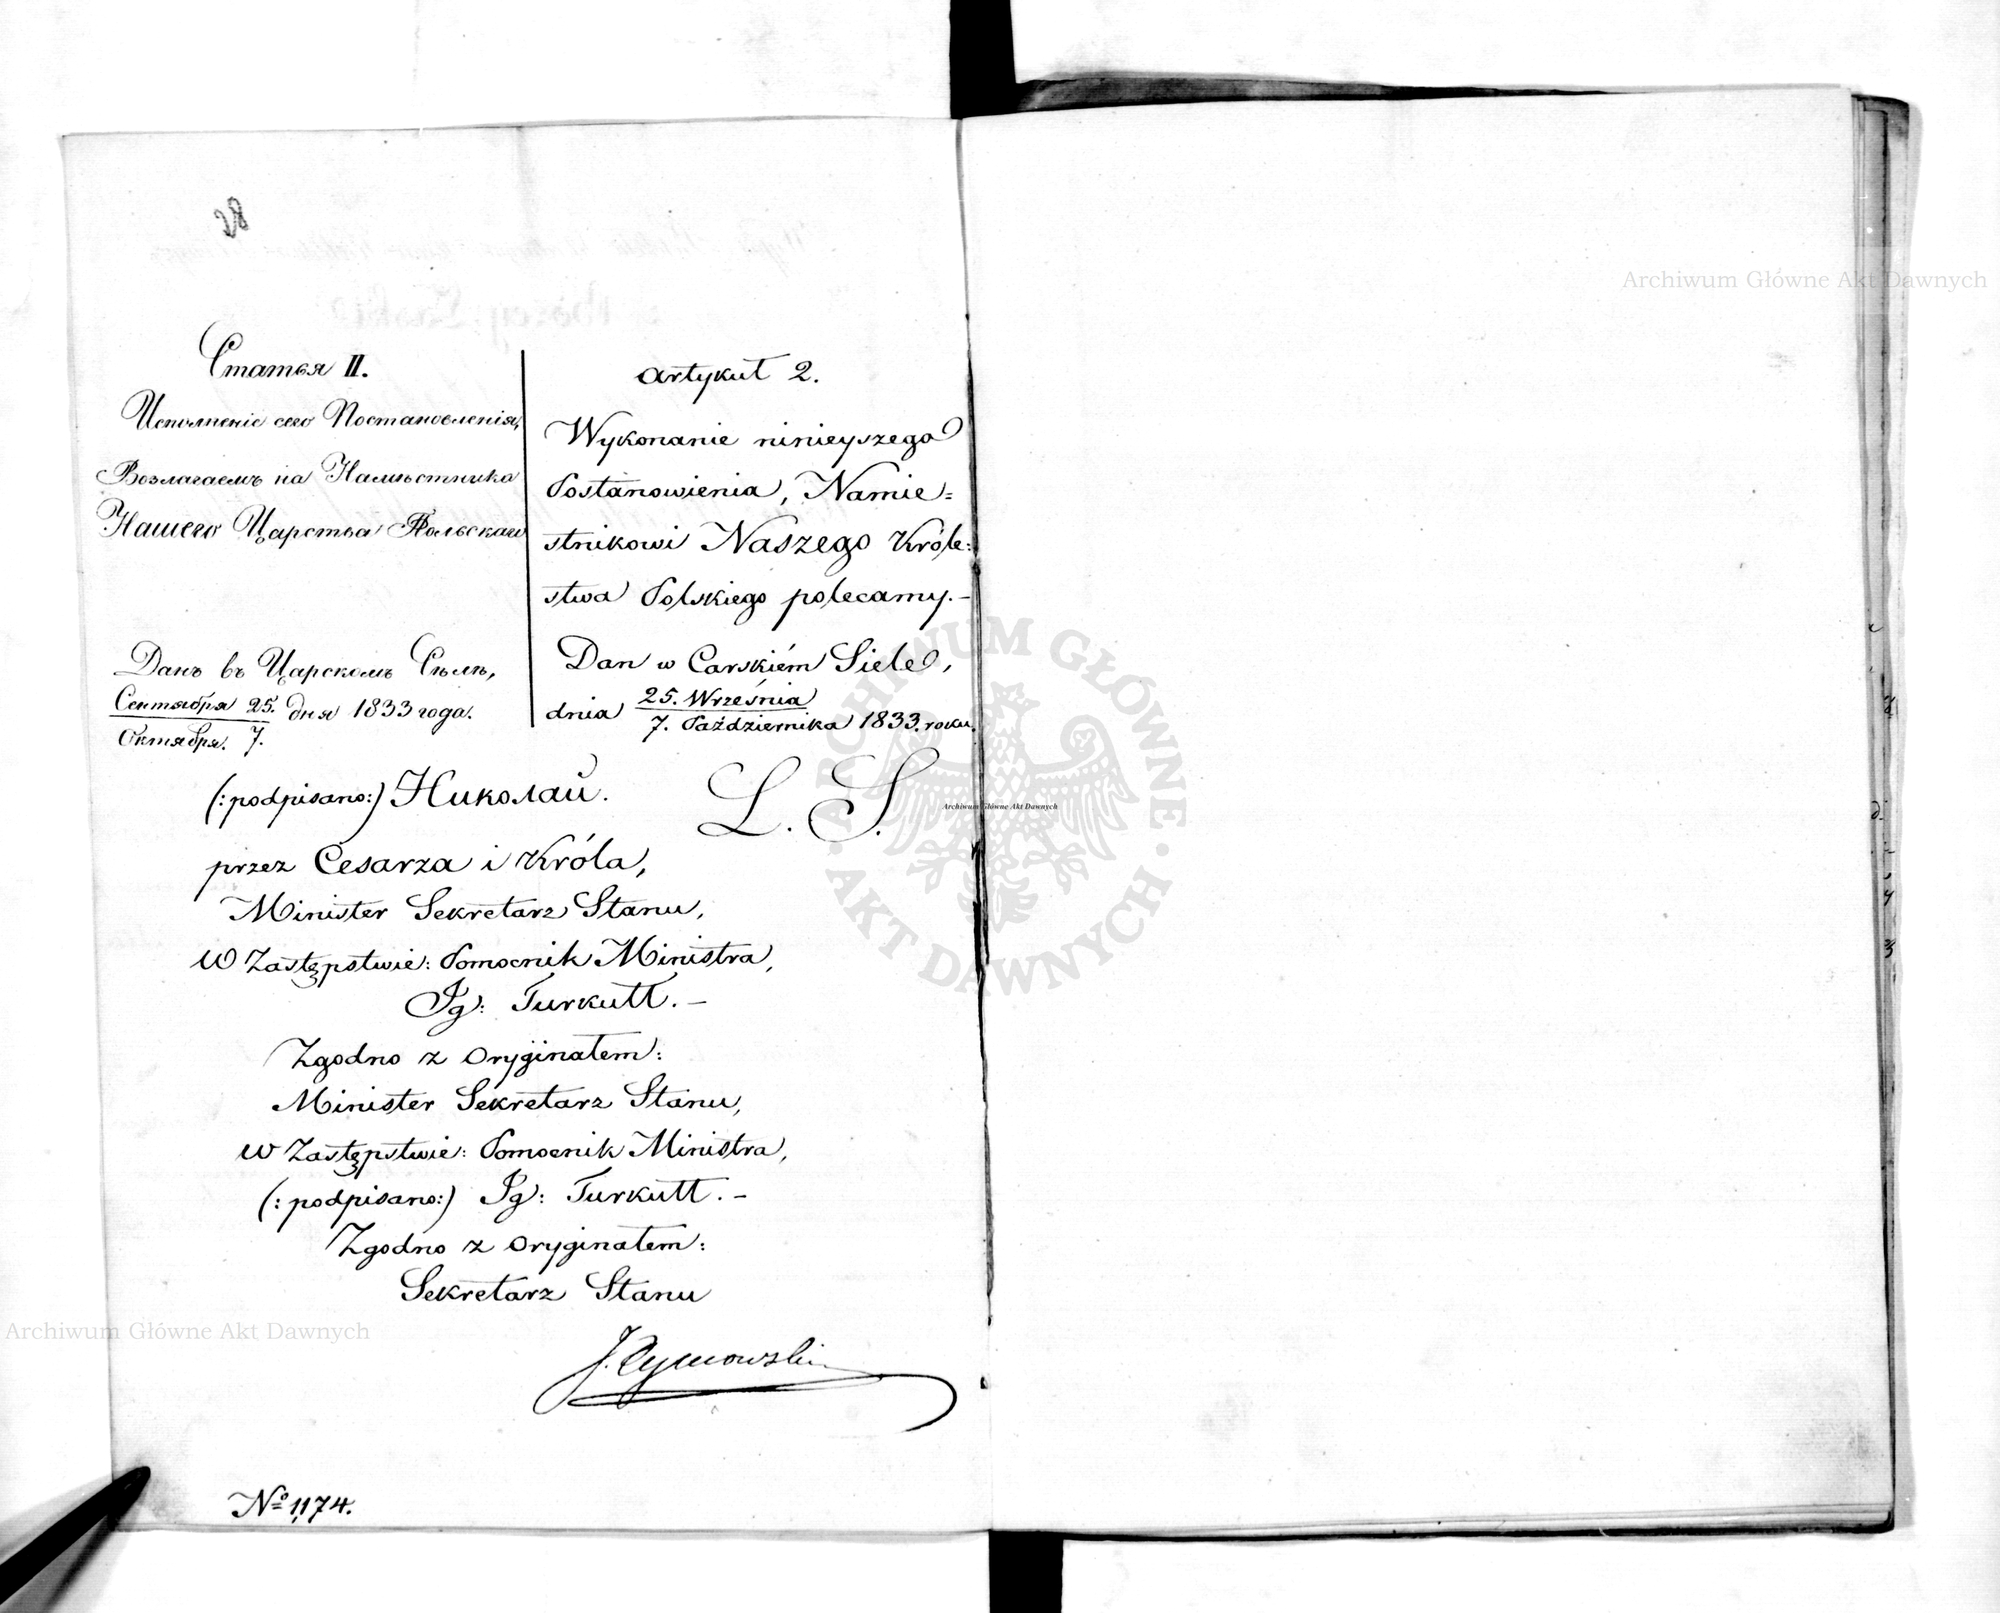 28
Статья II.
Исполненіе сего Постановленія,
Возлагаемъ на Намѣстника
Нашего Царства Польскаго
Данъ въ Царскомъ Сѣлѣ,
Сентября 25. дня 1833 года.
Октября. 7.
artykuł 2.
Wykonanie ninieyszego
Postanowienia, Namie=
stnikowi Naszego Króle=
stwa Polskiego polecamy.–
Dan w Carskiém Siele,
dnia 25. Września
7. Października 1833. roku.
(:podpisano:) Николай.
L. S.
przez Cesarza i Króla,
Minister Sekretarz Stanu,
w Zastępstwie: Pomocnik Ministra,
Ig: Turkułł.–
Zgodno z Oryginałem:
Minister Sekretarz Stanu,
w Zastępstwie: Pomocnik Ministra,
(:podpisano:) Ig: Turkułł.–
Zgodno z Oryginałem:
Sekretarz Stanu
J. Tymowski
№ 1,174.
Archiwum Główne Akt Dawnych
Archiwum Główne Akt Dawnych
Archiwum Główne Akt Dawnych
ARCHIWUM GŁÓWNE · AKT DAWNYCH ·